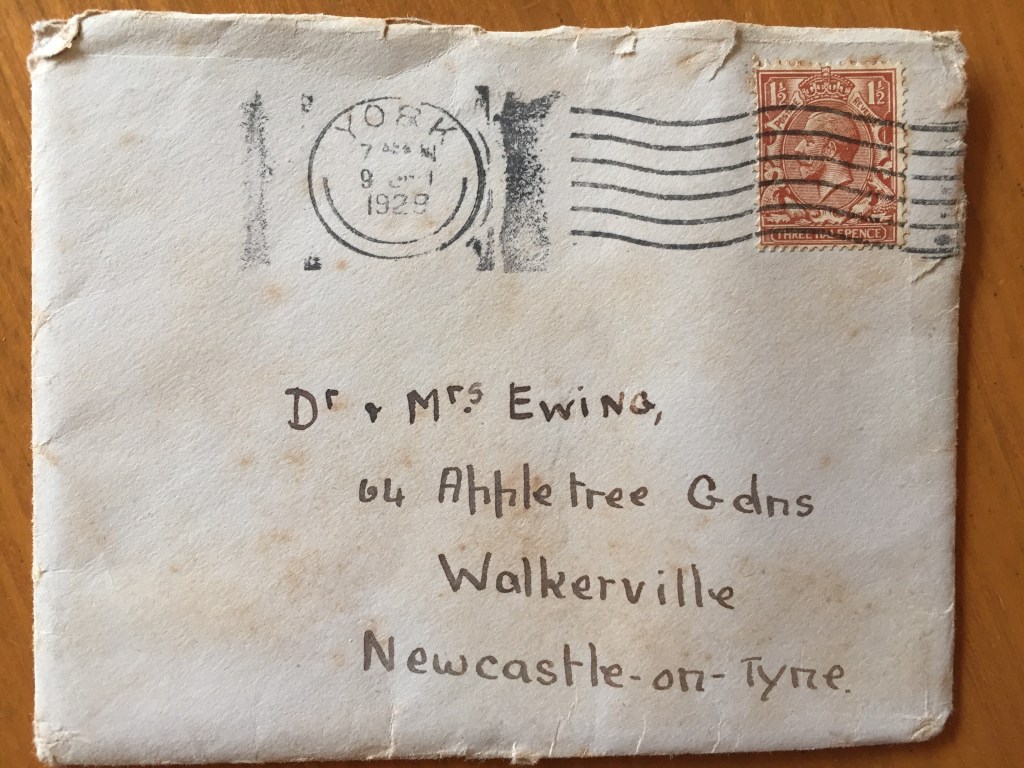 YORK
7
9
1928
1½ 1½
THREE HALFPENCE
Dr & Mrs. EWING,
64 Appletree Gdns
Walkerville
Newcastle-on-Tyne.